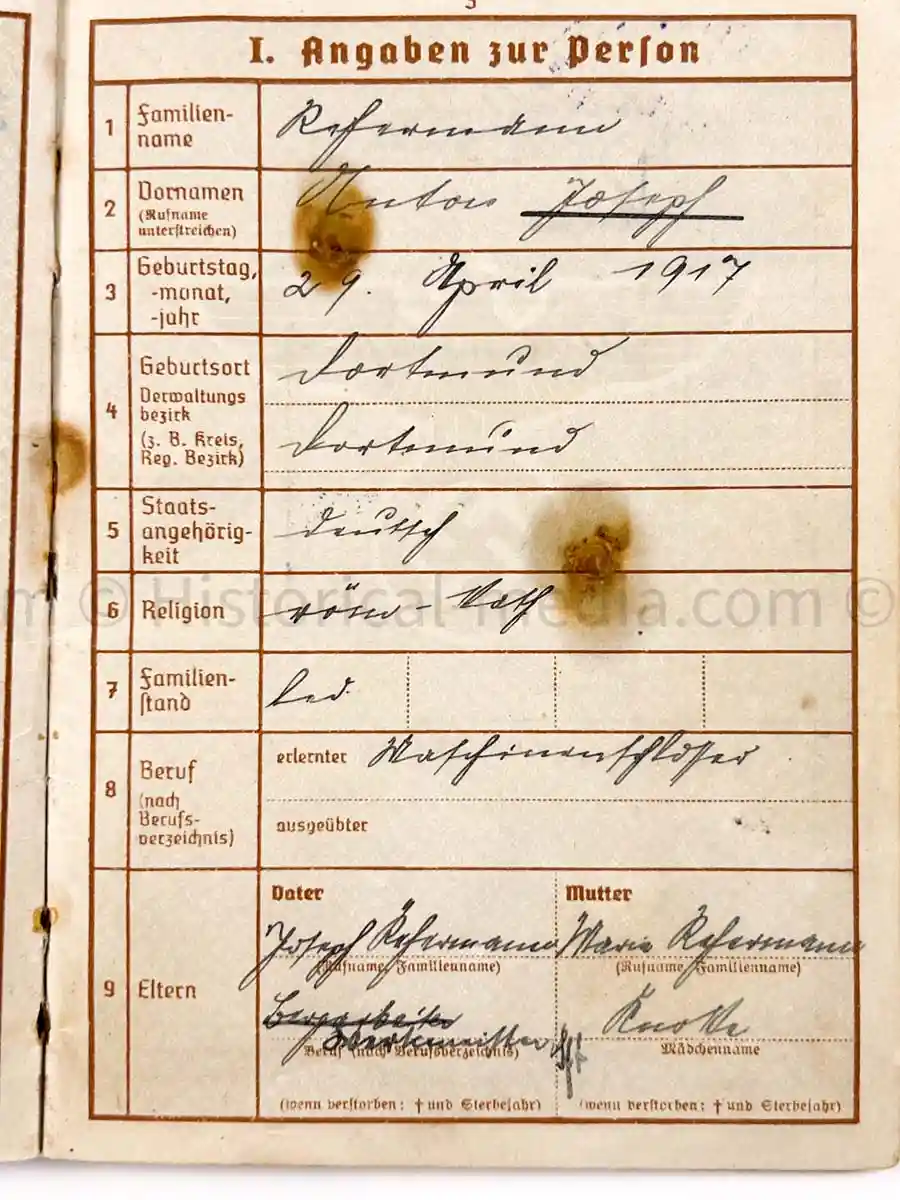 I. Angaben zur Person
1 Familien-
name
Refermann
2 Vornamen
(Rufname
unterstreichen)
Anton Joseph
3 Geburtstag,
-monat,
-jahr
29. April 1917
4 Geburtsort
Dortmund
Verwaltungs
bezirk
(z. B. Kreis,
Reg. Bezirk)
Dortmund
5 Staats-
angehörig-
keit
deutsch
6 Religion
röm - kath
7 Familien-
stand
led.
8 Beruf
(nach
Berufs-
verzeichnis)
erlernter Maschinenschlosser
ausgeübter
9 Eltern
Vater
Joseph Refermann
(Rufname, Familienname)
Bergarbeiter
Werkmeister
Beruf (nach Berufsverzeichnis)
(wenn verstorben: † und Sterbejahr)
Mutter
Maria Refermann
(Rufname Familienname)
Mädchenname
(wenn verstorben: † und Sterbejahr)
© Historical-media.com ©